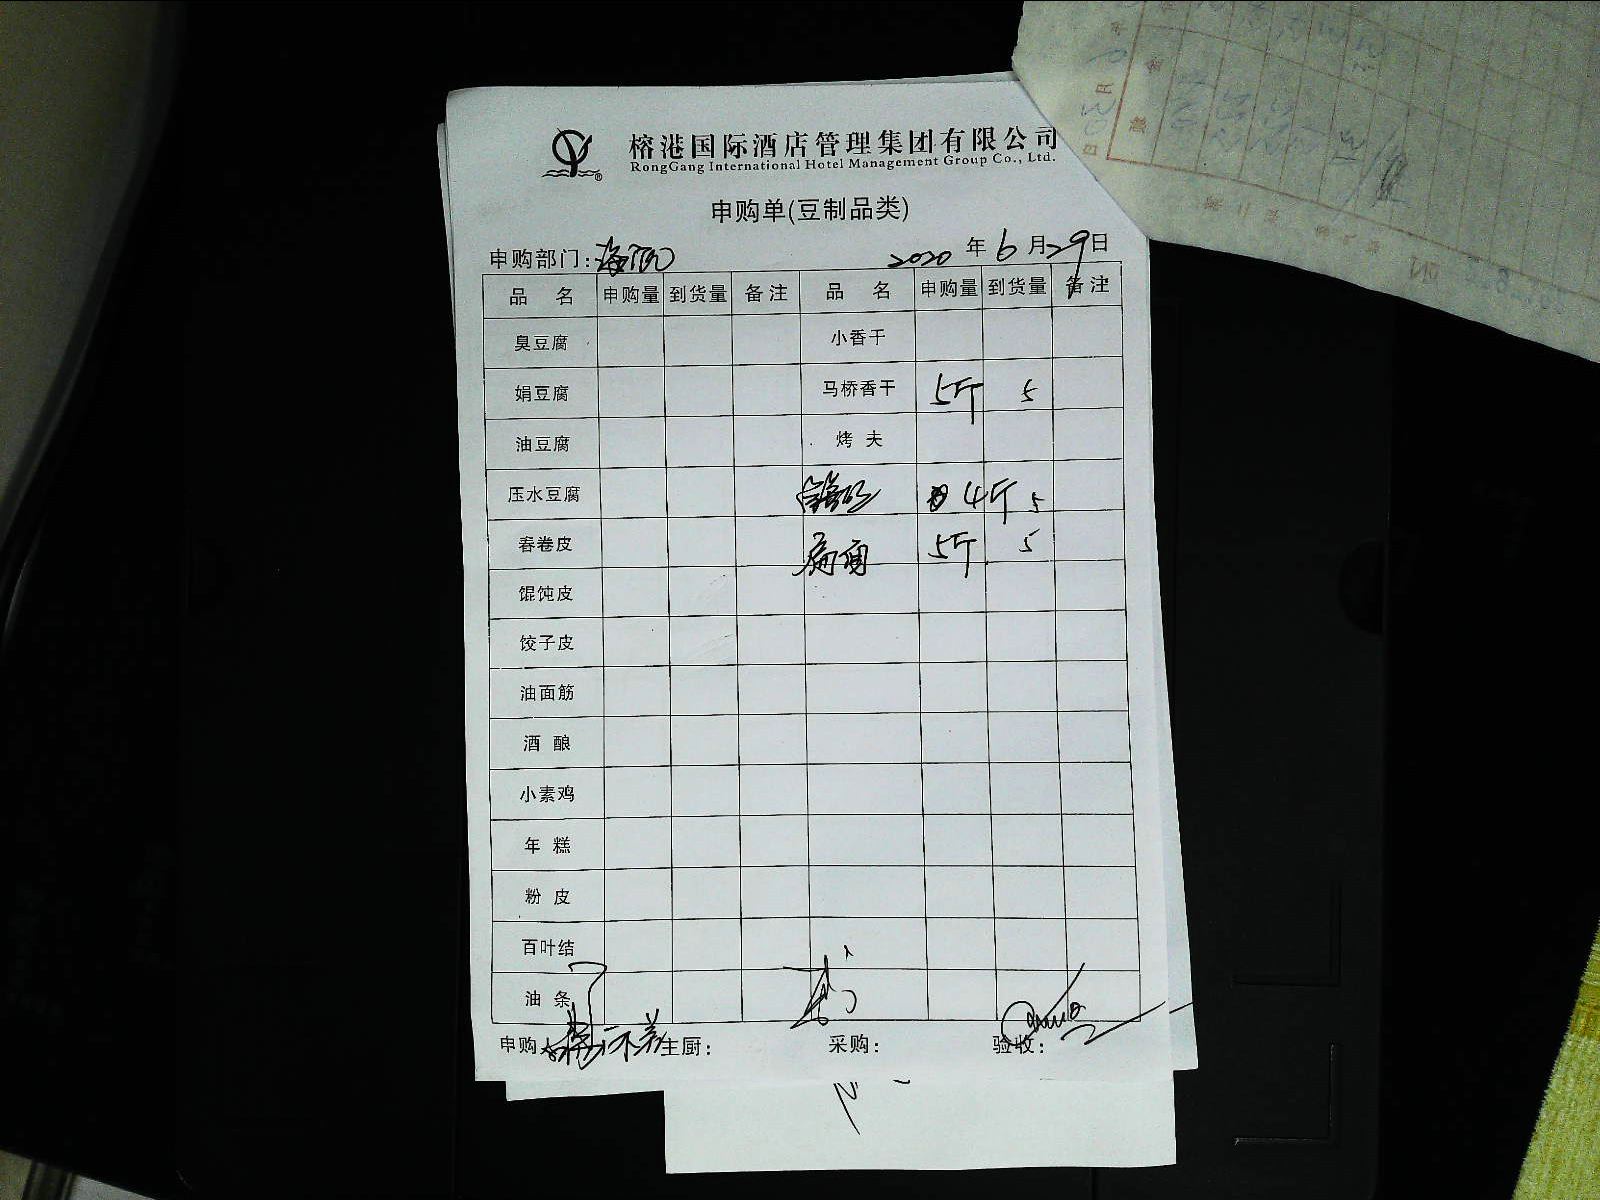 榕港国际酒店管理集团有限公司
RongGang International Hotel Management Group Co., Ltd.
申购单(豆制品类)
申购部门: 2020 年 6 月 29 日
品 名 申购量 到货量 备注 品 名 申购量 到货量 备注
臭豆腐 小香干
娟豆腐 马桥香干 5斤 5
油豆腐 烤 夫
压水豆腐 4斤 5
春卷皮 5斤 5
馄饨皮
饺子皮
油面筋
酒 酿
小素鸡
年 糕
粉 皮
百叶结
油 条
申购 主厨: 采购: 验收: